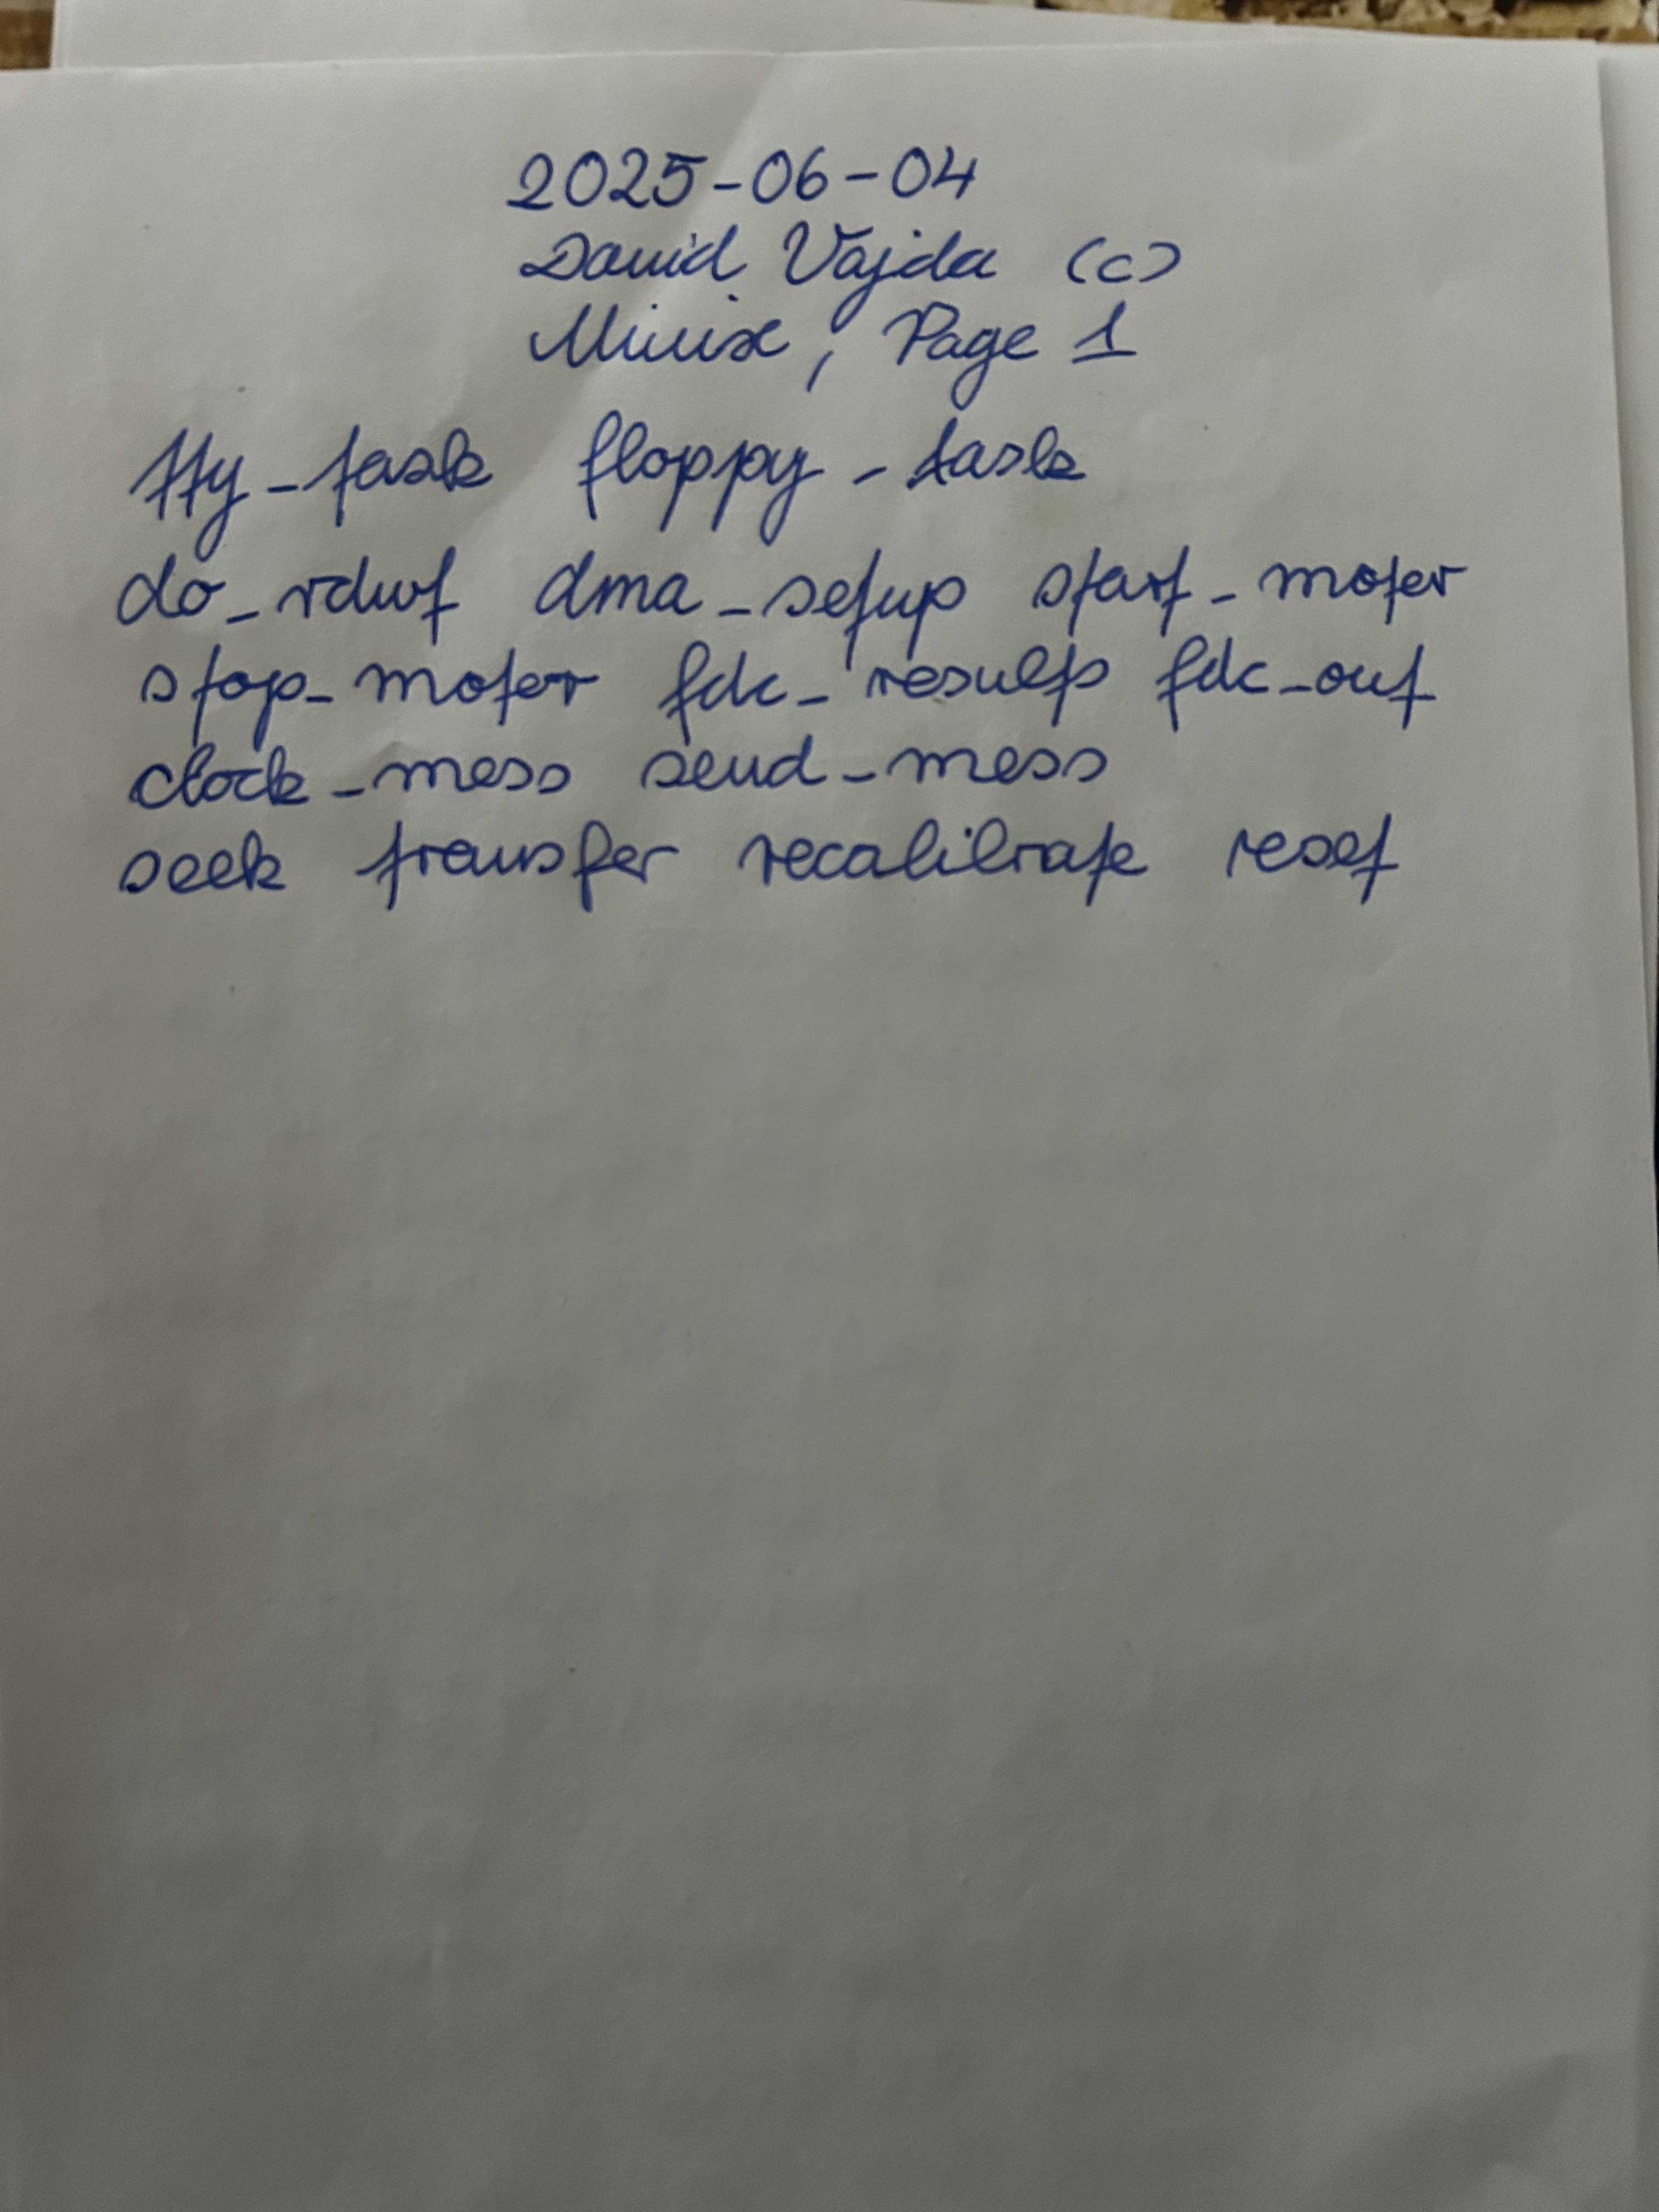 2025-06-04
David Vajda (c)
Minix, Page 1
tty_task floppy_task
do_rdwt dma_setup start_moter
stop_moter fdc_results fdc_out
clock_mess send_mess
seek transfer recalibrate reset